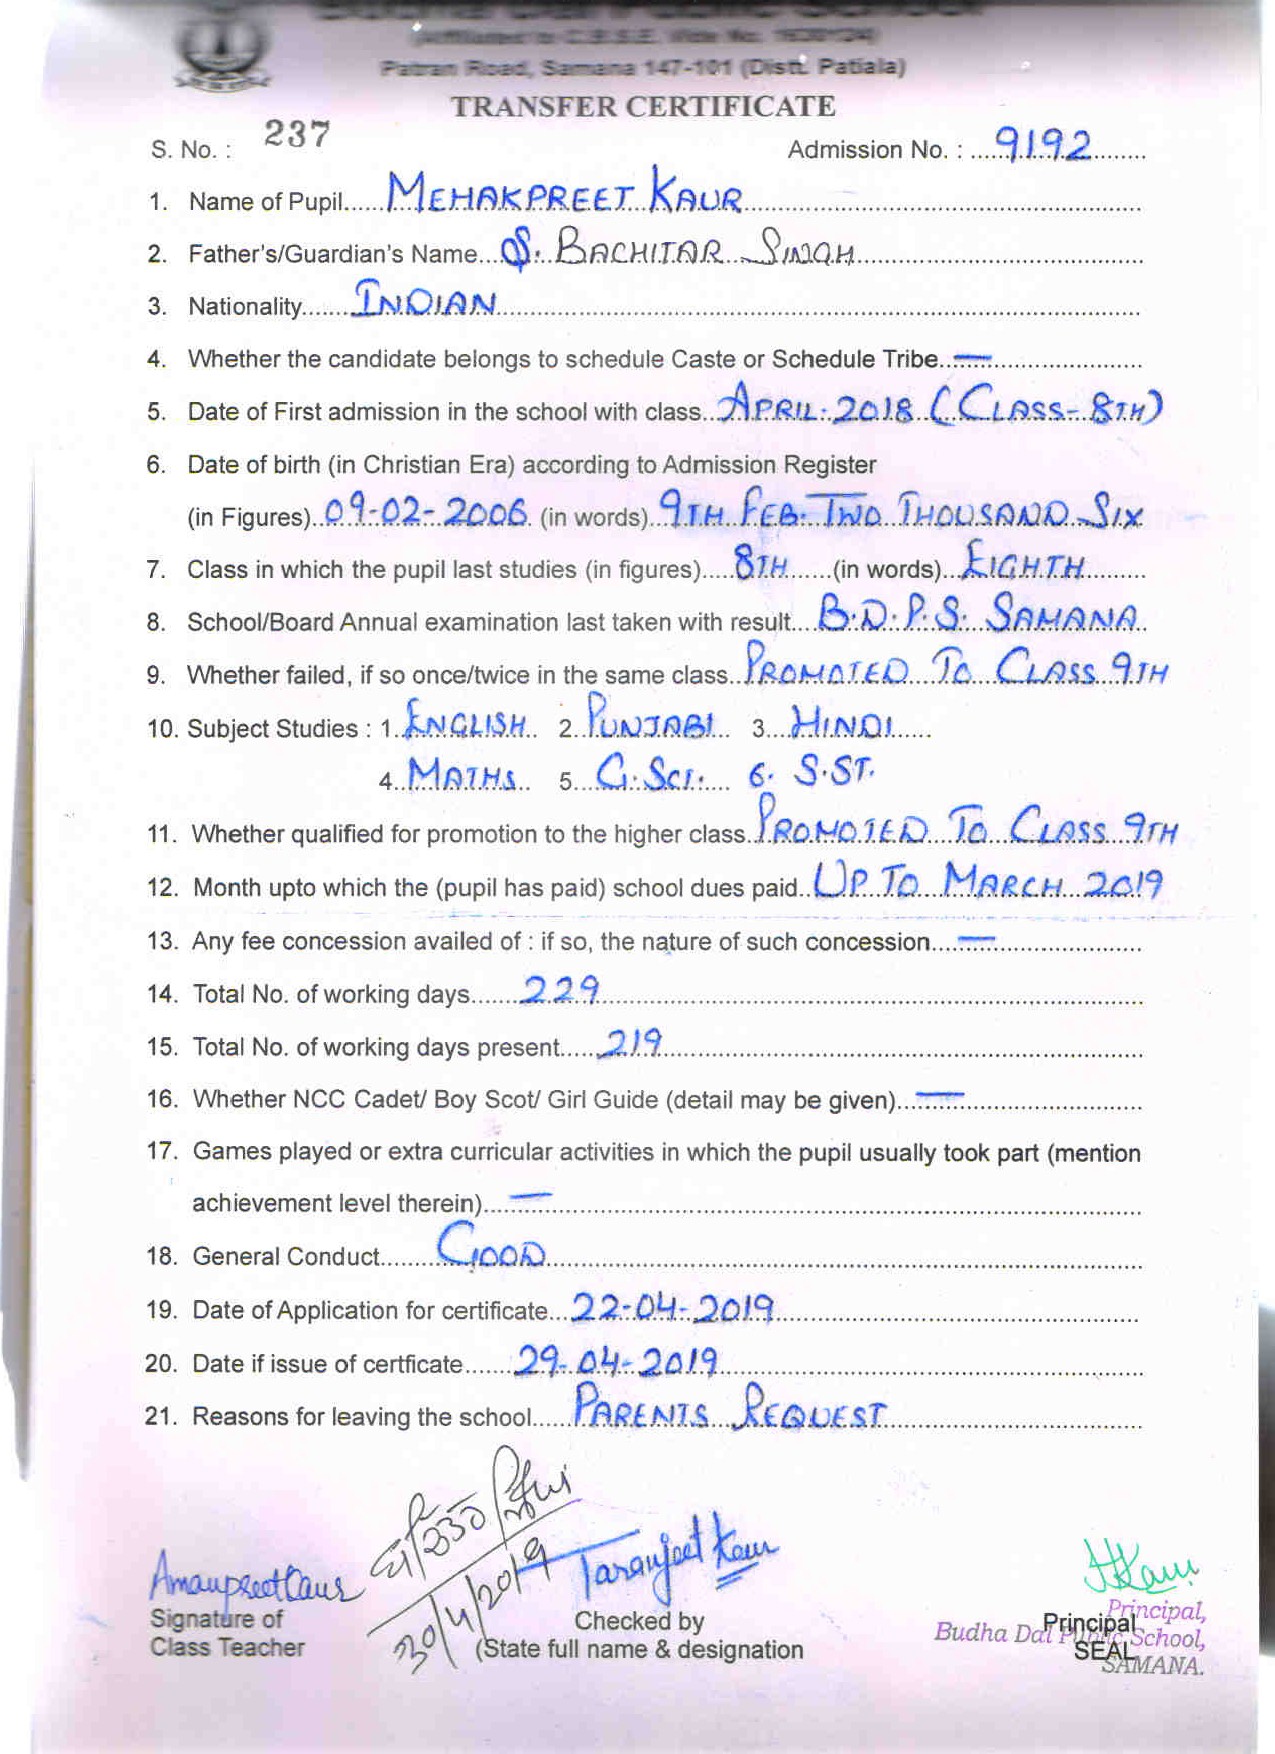 Budha Dal Public School
(Affiliated to C.B.S.E. Vide No. 1630124)
Patran Road, Samana 147-101 (Distt. Patiala)
TRANSFER CERTIFICATE
S. No. : 237 Admission No. : 9192
1. Name of Pupil MEHAKPREET KAUR
2. Father's/Guardian's Name S. BACHITAR SINGH
3. Nationality INDIAN
4. Whether the candidate belongs to schedule Caste or Schedule Tribe —
5. Date of First admission in the school with class APRIL. 2018 (CLASS-8TH)
6. Date of birth (in Christian Era) according to Admission Register
(in Figures) 09-02-2006 (in words) 9TH FEB. TWO THOUSAND SIX
7. Class in which the pupil last studies (in figures) 8TH (in words) EIGHTH
8. School/Board Annual examination last taken with result B.D.P.S. SAMANA
9. Whether failed, if so once/twice in the same class PROMOTED TO CLASS 9TH
10. Subject Studies : 1. ENGLISH 2. PUNJABI 3. HINDI
4. MATHS 5. G.SCI. 6. S.ST.
11. Whether qualified for promotion to the higher class PROMOTED TO CLASS 9TH
12. Month upto which the (pupil has paid) school dues paid UP TO MARCH 2019
13. Any fee concession availed of : if so, the nature of such concession —
14. Total No. of working days 229
15. Total No. of working days present 219
16. Whether NCC Cadet/ Boy Scot/ Girl Guide (detail may be given) —
17. Games played or extra curricular activities in which the pupil usually took part (mention
achievement level therein) —
18. General Conduct GOOD
19. Date of Application for certificate 22-04-2019
20. Date if issue of certficate 29-04-2019
21. Reasons for leaving the school PARENTS REQUEST
30/4/2019
Amanpreet Kaur Taranjeet Kaur
Signature of Class Teacher
Checked by
(State full name & designation
Principal
SEAL
Principal,
Budha Dal Public School,
SAMANA.